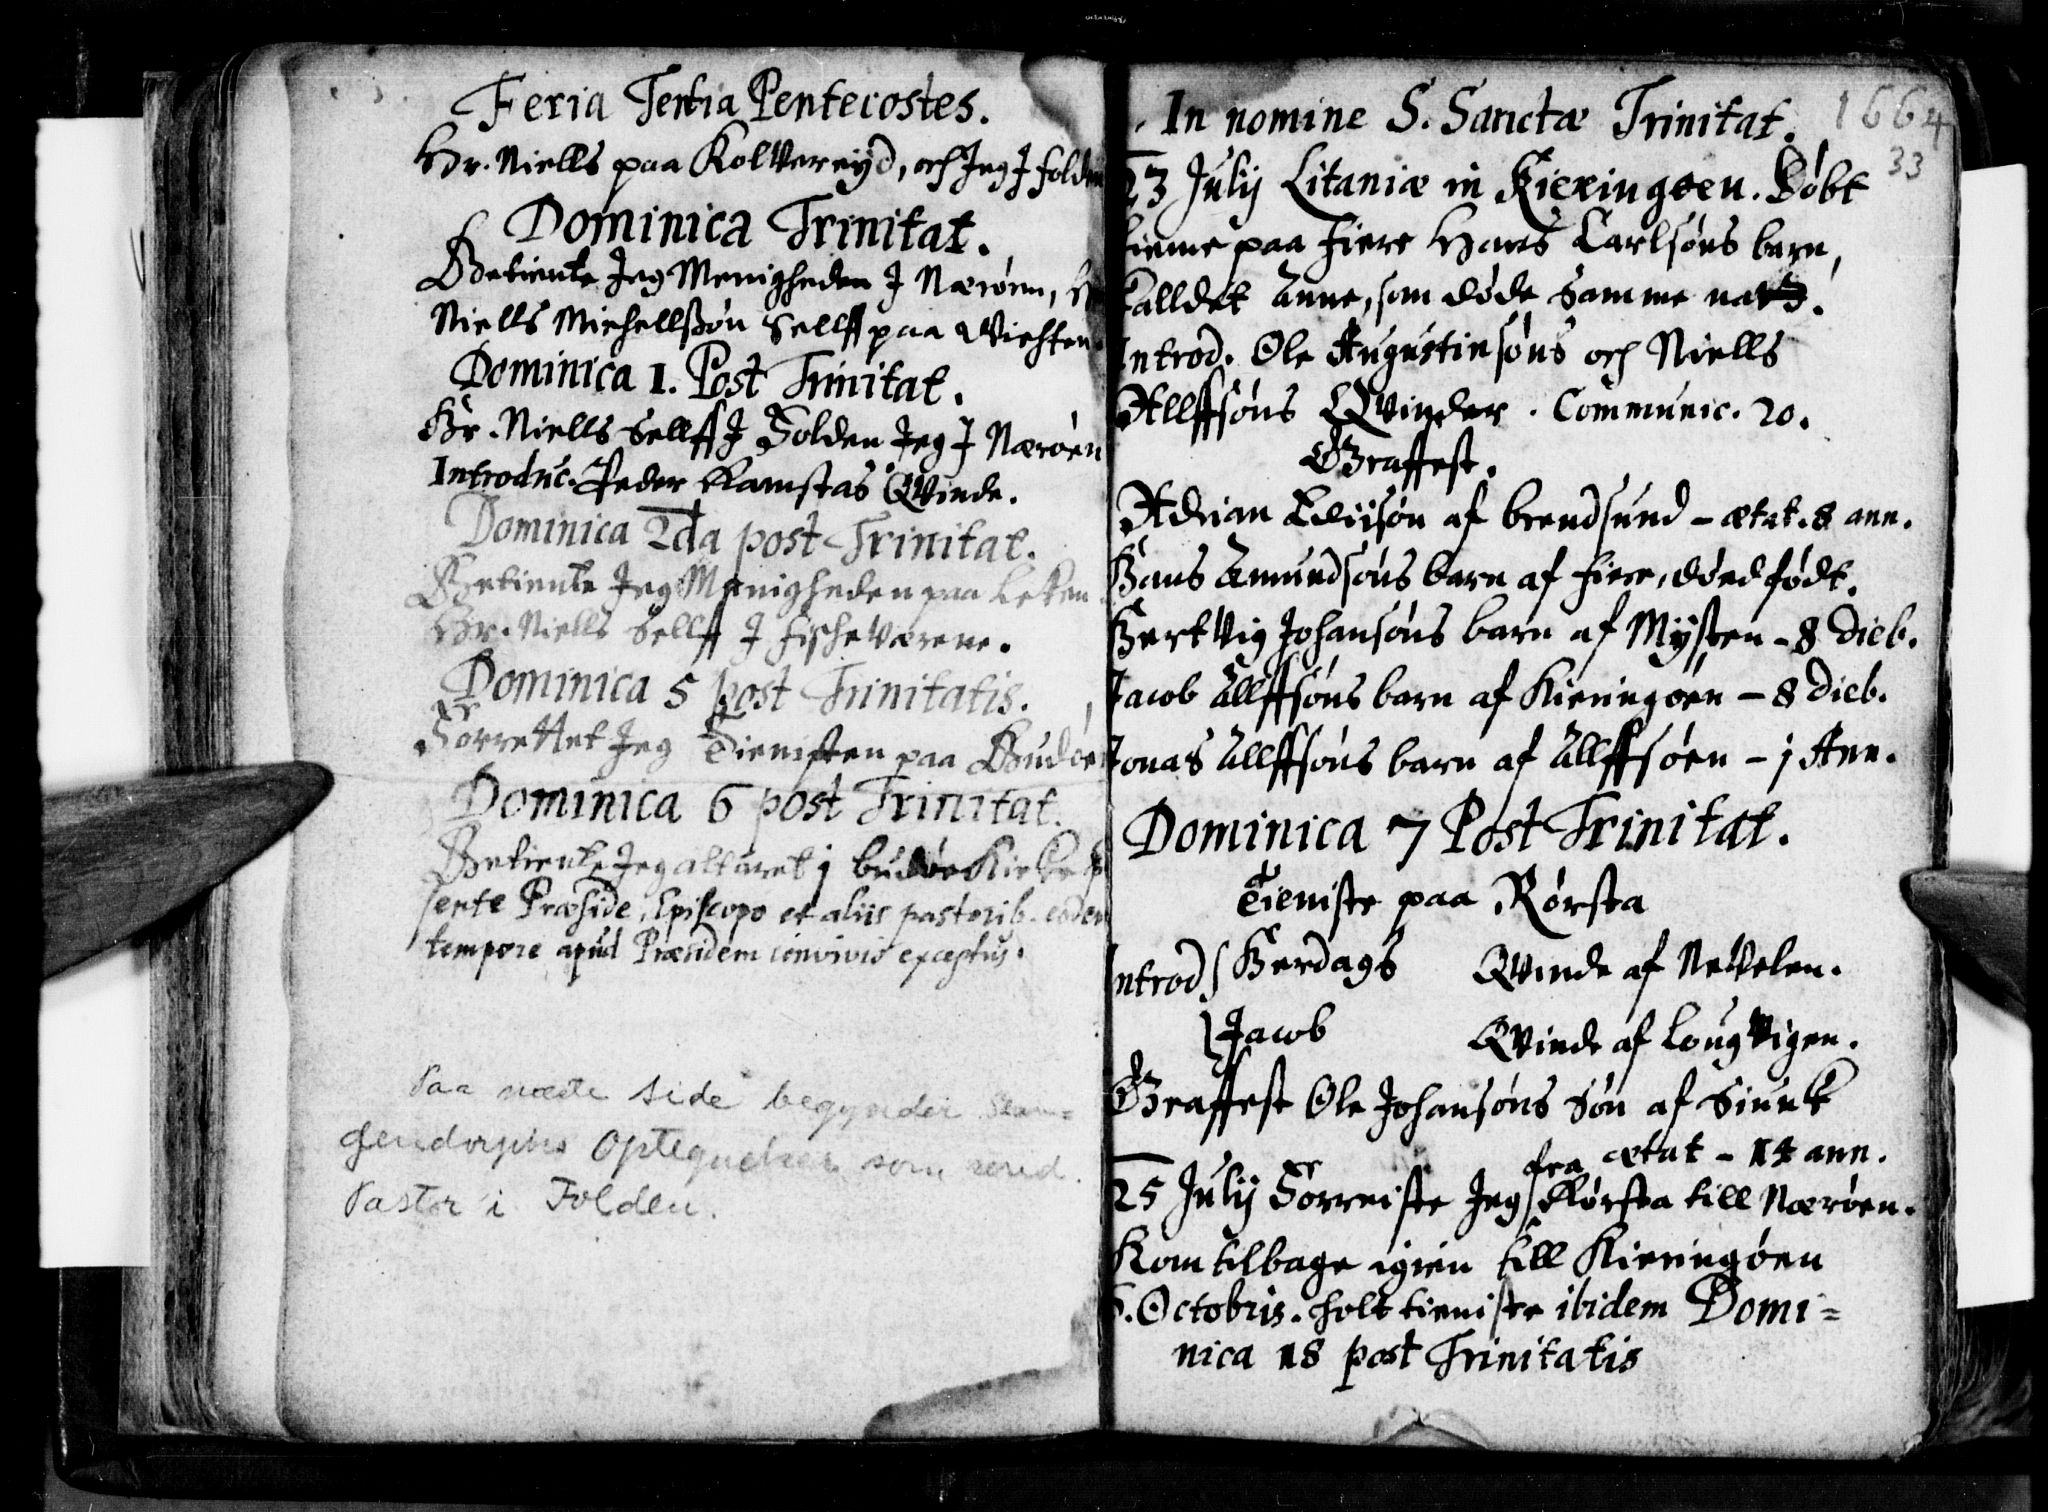 Feria Tertia Pentecostes.
Hr. Niells paa Kolvereÿd, och Jeg J folden
Dominica Trinitat.
Betiente Jeg Menigheden J Nærøen, Hr
Niells Michellsøn Sellff paa Vichten.
Dominica 1. Post Trinitat.
Hr. Niells Sellff J Folden Jeg J Nærøen
Introduc. Peder Ramstas Qvinde.
Dominica 2da post Trinitat.
Betiente Jeg Menigheden paa Leken.
Hr. Niells Sellff J fischeværene.
Dominica 5 post Trinitatis.
Forrettet Jeg Tienisten paa Budøe
Dominica 6 post Trinitat.
Betiente Jeg alteret j budøe Kirke
sente Præside, Episcopo et aliis pastorib. eodem
tempore apud Præsidem convivio exceptus.
Paa næste side begynder Slan=
gendorphs Optegnelser som resid.
Pastor i Folden.
In nomine S. Sanctæ Trinitat. 1664
33
23 Julij Litaniæ in Kieringøen. Døbt
hieme paa fiere Hans Carlsøns barn,
kalldet Anne, som døde samme nat.
Introd. Ole Augustinsøns och Niells
Allffsøns Qvinder. Communic. 20.
Graffest.
Adrian af brendsund - ætat. 8 ann.
Hans Amundsøns barn af fiere, død født.
Hertvig Johansøns barn af Mÿsten - 8 dieb.
Jacob Allffsøns barn af Kieringøen - 8 dieb.
Jonas Allffsøns barn af Allffsøen - j Ann.
Dominica 7 Post Trinitat.
Tieniste paa Rørsta
Introd. Herdags Qvinde af Nevelen.
Jacob Qvinde af Lougvigen.
Graffest Ole Johansøns Søn af
ætat - 14 ann.
25 Julij Forreiste Jeg fra Rørsta till Nærøen.
Kom tilbage igien till Kieringøen
Octobris. holt tieniste ibidem Domi=
nica 18 post Trinitatis